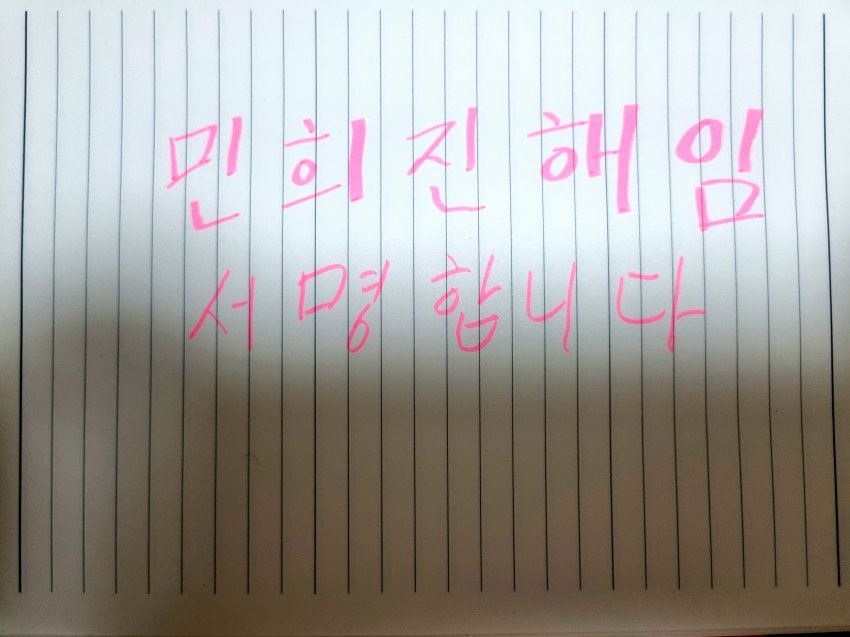 민희진해임
서명합니다